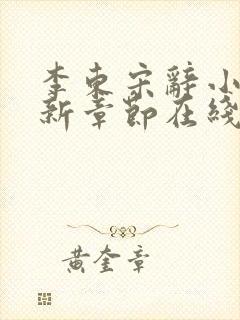 李東宋辭小
新章節在綫
黃奎章